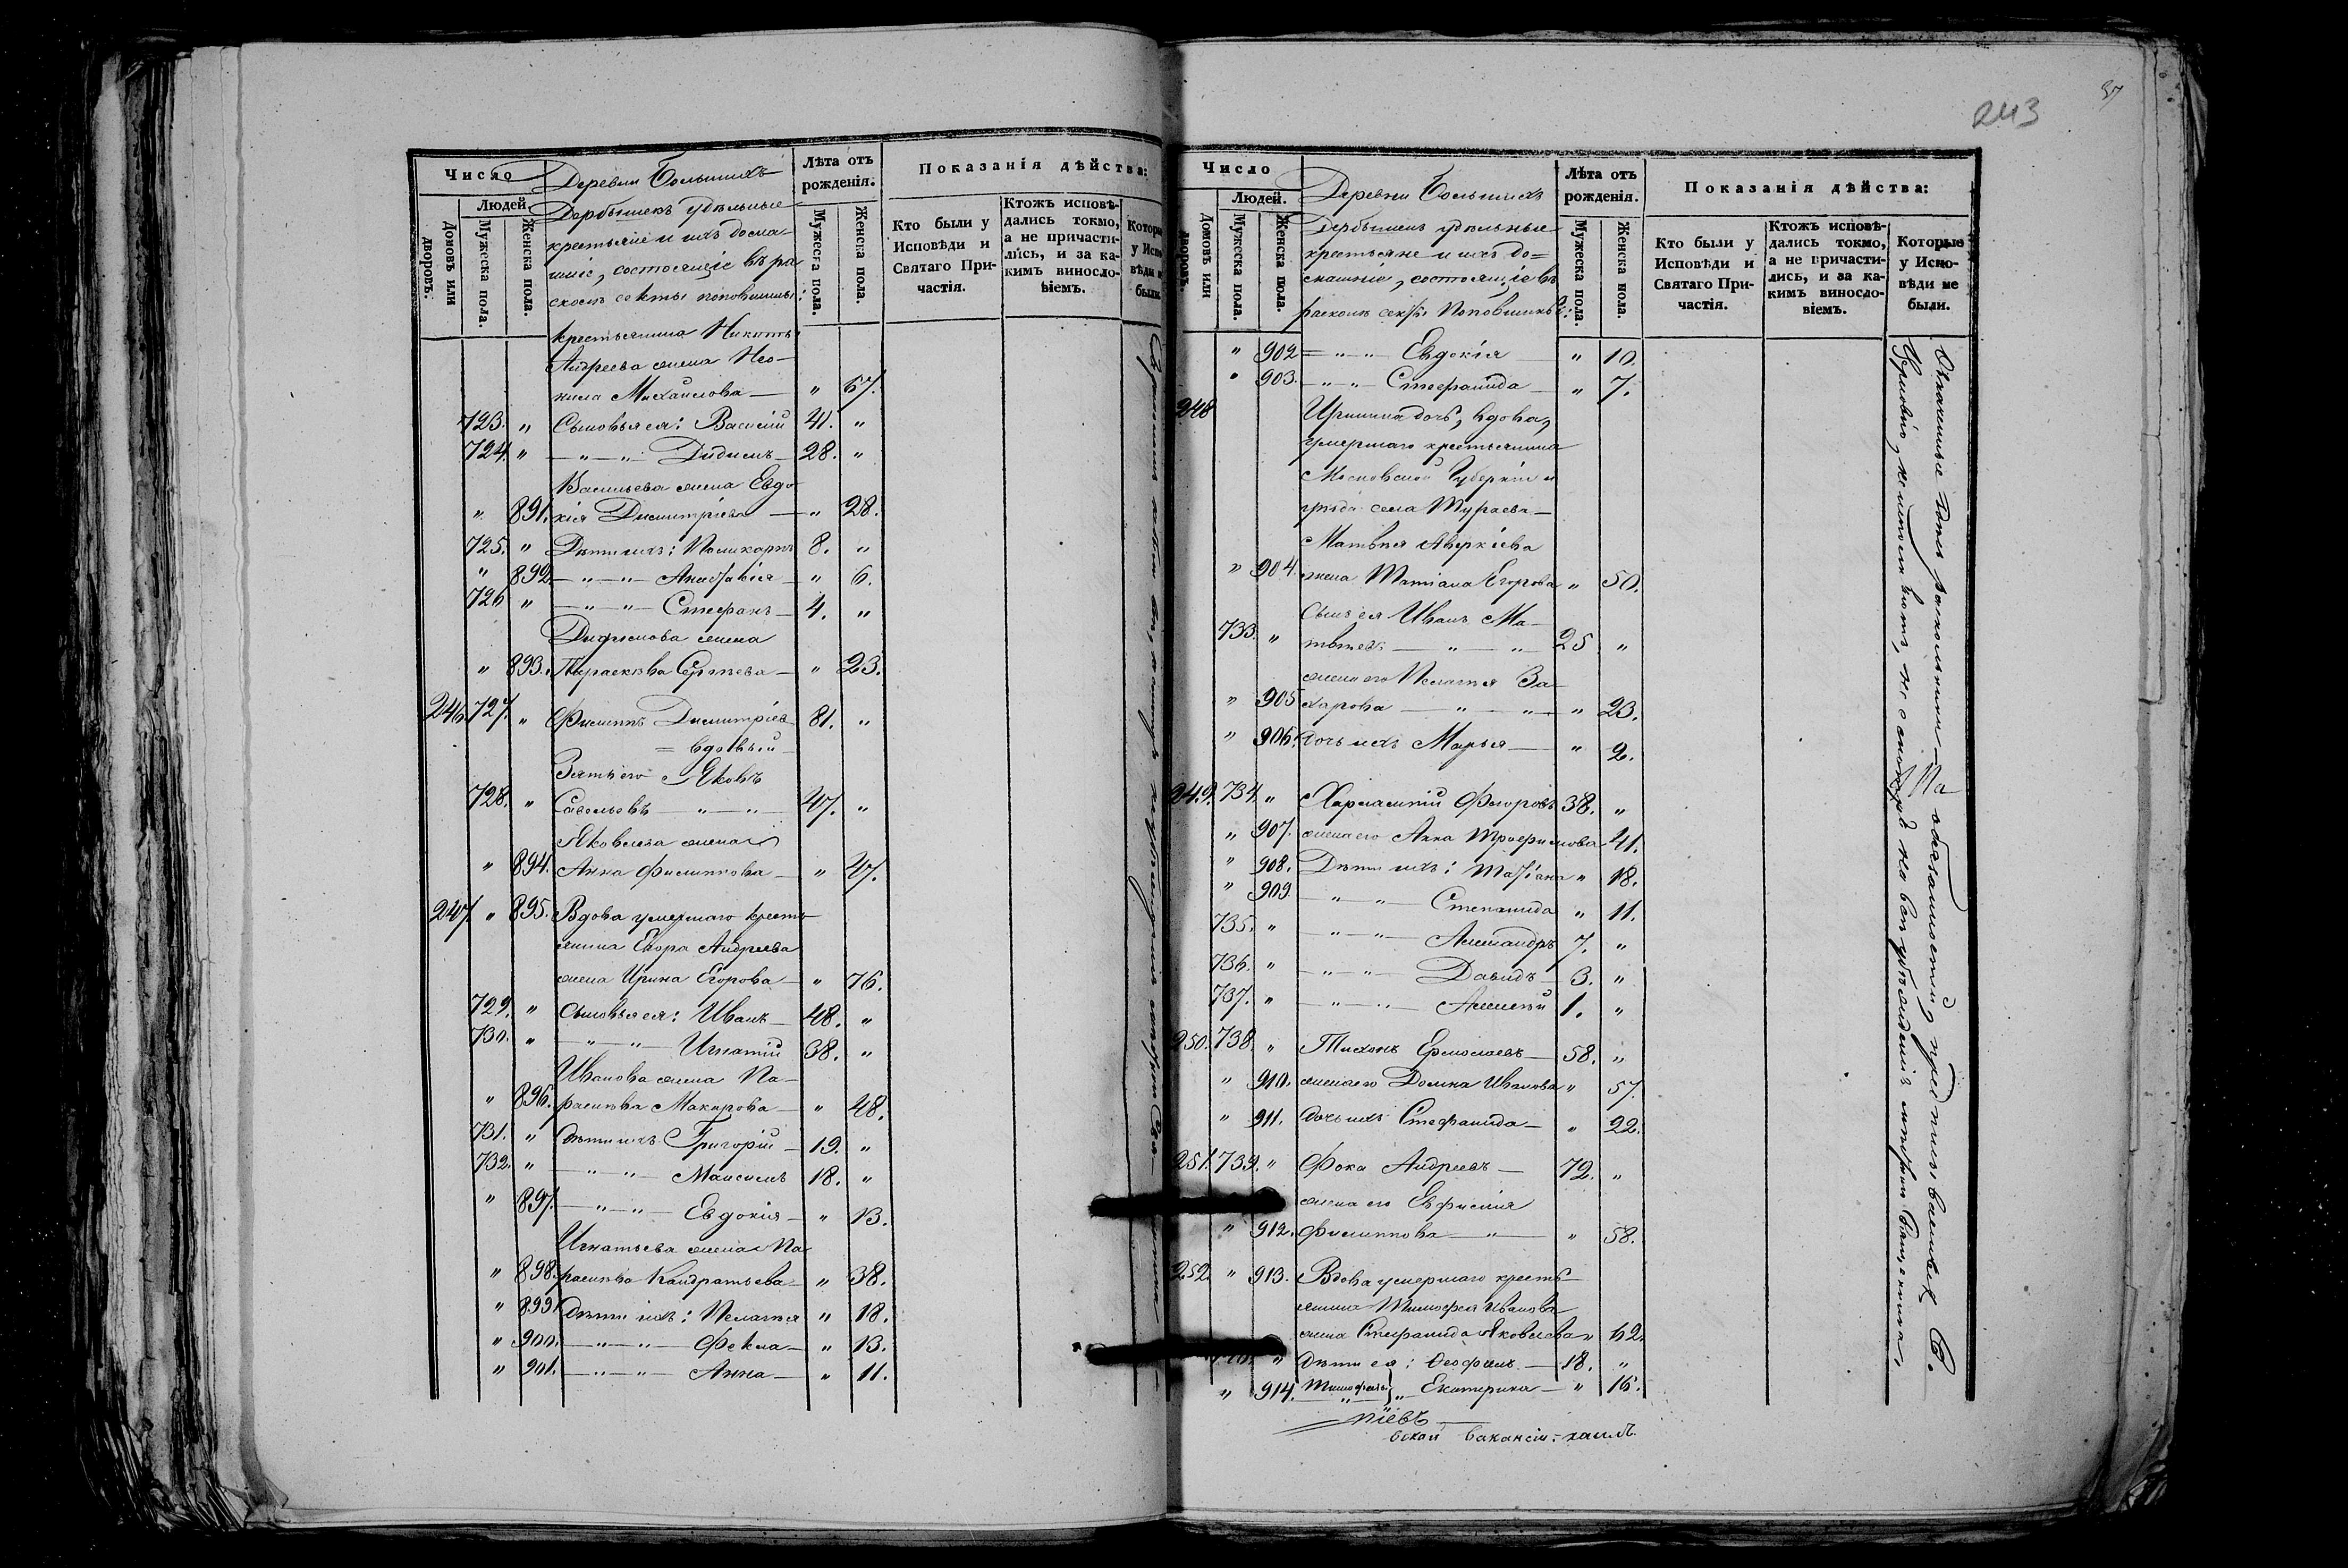 243
37
Число
Людей.
Домовъ или дворовъ.
Мужеска пола.
Женска пола.
Деревни Большихъ
Дербышекъ удѣльные
крестьяне и ихъ дома-
шніе, состоящіе въ ра
сколѣ секты поповщины:
Лѣта отъ рожденія.
Мужеска пола.
Женска пола.
Показанія дѣйства:
Кто были у Исповѣди и Святаго При- частія.
Ктожъ исповѣ- дались токмо, а не причасти- лись, и за ка- кимъ винословіемъ.
крестьянина Никиты
Андреева жена Нео-
нила Михайлова — " 67.
723. " Сыновья ея: Василій 41. "
724. " — " — " Дидимъ — 28. "
Васильева жена Евдо
" 891. кія Димитріева — " 28.
725. " Дѣти ихъ: Поликарпъ 8. "
" 892 — " — " — Анастасія — " 6.
726 " — " — " — Стефанъ — 4. "
Дидимова жена
" 893. Параскева Сергѣева — " 23.
246. 727. " Филиппъ Димитріевъ 81. "
= вдовый
Зять его Яковъ
728. " Савельевъ — " — " 47. "
Яковлева жена
" 894. Анна Филиппова — " 47.
247. " 895. Вдова умершаго кресть
янина Егора Андреева
жена Ирина Егорова — " 76.
729. " Сыновья ея: Иванъ — 48. "
730. " — " — " — Игнатій 38. "
Иванова жена Па-
" 896. раскева Макарова — " 48.
731. " Дѣти ихъ Григорій — 19. "
732. " — " — " — Максимъ 18. "
" 897. — " — " — Евдокія — " 13.
Игнатьева жена Па
" 898. раскева Кандратьева — " 38.
" 899. Дѣти ихъ: Пелагея " 18.
" 900. — " — " — Фекла — " 13.
" 901. — " — " — Анна — " 11.
Число
Людей.
Домовъ или дворовъ.
Мужеска пола.
Женска пола.
Деревни Большихъ
Дербышекъ удѣльные
крестьяне и ихъ до=
машніе, состоящіе въ
расколѣ секты Поповщины:
Лѣта отъ рожденія.
Мужеска пола.
Женска пола.
Показанія дѣйства:
Кто были у Исповѣди и Святаго При- частія.
Ктожъ исповѣ- дались токмо, а не причасти- лись, и за ка- кимъ винословіемъ.
Которые у Испо- вѣди не были.
" 902 = " — " Евдокія — " 10.
" 903. — " — " Стефанида — " 7.
248 Иринина дочь, вдова,
умершаго крестьянина
Московской Губерніи и
села Тураева —
Матвѣя Аверкіева
" 904. жена Татіана Егорова " 50.
Сынъ ея Иванъ Ма-
733. " твѣевъ — " — " 25 "
жена его Пелагея За-
" 905 харова — " — " — " 23.
" 906. Дочь ихъ Марья — " 2.
249. 734 " Харлампій Ѳедоровъ 38. "
" 907. жена его Анна Трофимова 41.
" 908. Дѣти ихъ: Татіана " 18.
" 909. — " — " Степанида " 11.
735. " — " — " — Александръ 7. "
736. " — " — " — Давидъ — 3. "
737. " — " — " — Алексѣй 1. "
250. 738. " Тихонъ Ермолаевъ — 58. "
" 910. жена его Домна Иванова " 57.
" 911. дочь ихъ Стефанида — " 22.
251. 739. " Фока Андреевъ — 72. "
жена его Евфимія
" 912. Филиппова — " — " 58.
252. " 913. Вдова умершаго кресть-
янина Тимоѳея Иванова
жена Стефанида Яковлева " 62.
" Дѣти ея: Ѳеофилъ — 18. "
" 914. Тимофеевы " Екатерина — " 16.
вской вакансіи: